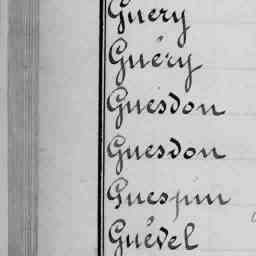 Guery
Guéry
Guesdon
Guesdon
Guespin
Guével